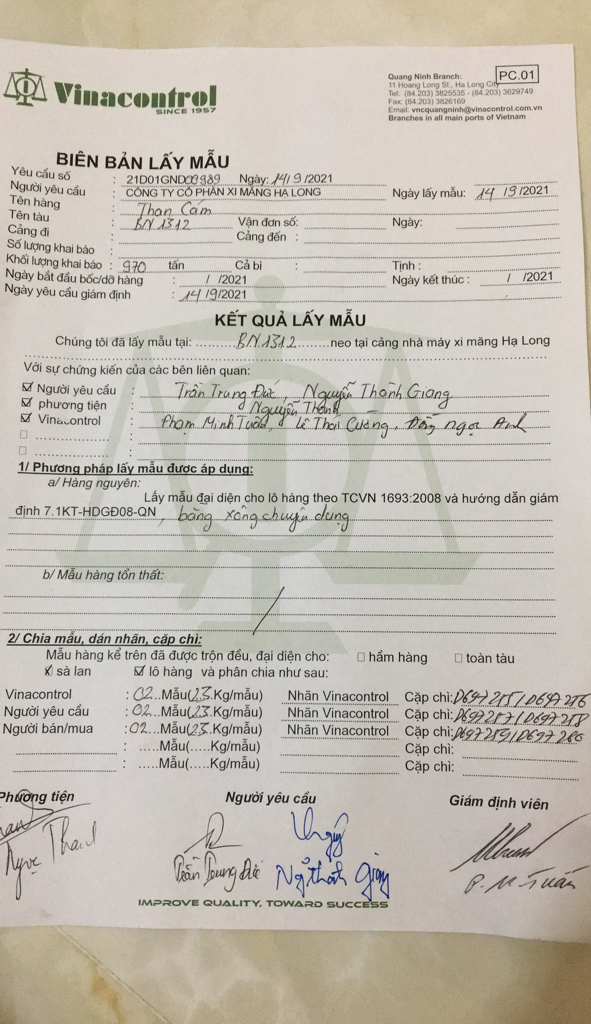 Vinacontrol
SINCE 1957
Quang Ninh Branch:
PC.01
11 Hoang Long St., Ha Long City
Tel: (84.203) 3825535 - (84.203) 3629749
Fax: (84.203) 3826169
Email: vncquangninh@vinacontrol.com.vn
Branches in all main ports of Vietnam
BIÊN BẢN LẤY MẪU
Yêu cầu số : 21D01GND09989 Ngày: 14/9/2021
Người yêu cầu : CÔNG TY CỔ PHẦN XI MĂNG HẠ LONG Ngày lấy mẫu: 14/9/2021
Tên hàng : Than Cám
Tên tàu : BN 1312 Vận đơn số: Ngày:
Cảng đi : Cảng đến :
Số lượng khai báo :
Khối lượng khai báo : 970 tấn Cả bì : Tịnh :
Ngày bắt đầu bốc/dỡ hàng : / /2021 Ngày kết thúc : / /2021
Ngày yêu cầu giám định : 14/9/2021
KẾT QUẢ LẤY MẪU
Chúng tôi đã lấy mẫu tại: BN 1312 neo tại cảng nhà máy xi măng Hạ Long
Với sự chứng kiến của các bên liên quan:
Người yêu cầu : Trần Trung Đức, Nguyễn Thành Giang
phương tiện : Nguyễn Thành
Vinacontrol : Phạm Minh Tuấn, Lê Thái Cường, Ngọc Anh
1/ Phương pháp lấy mẫu được áp dụng:
a/ Hàng nguyên:
Lấy mẫu đại diện cho lô hàng theo TCVN 1693:2008 và hướng dẫn giám
định 7.1KT-HDGĐ08-QN, bằng xông chuyên dụng
b/ Mẫu hàng tổn thất:
2/ Chia mẫu, dán nhãn, cặp chì:
Mẫu hàng kể trên đã được trộn đều, đại diện cho: hầm hàng toàn tàu
sà lan lô hàng và phân chia như sau:
Vinacontrol : 02 Mẫu(23 Kg/mẫu) Nhãn Vinacontrol Cặp chì: D697285/D697286
Người yêu cầu : 02 Mẫu(23 Kg/mẫu) Nhãn Vinacontrol Cặp chì:
Người bán/mua : 02 Mẫu(23 Kg/mẫu) Nhãn Vinacontrol Cặp chì:
: .....Mẫu(.....Kg/mẫu) Cặp chì:
: .....Mẫu(.....Kg/mẫu) Cặp chì:
Phương tiện Người yêu cầu Giám định viên
Trần Trung Đức Ng Thành Giang P. M Tuấn
IMPROVE QUALITY, TOWARD SUCCESS